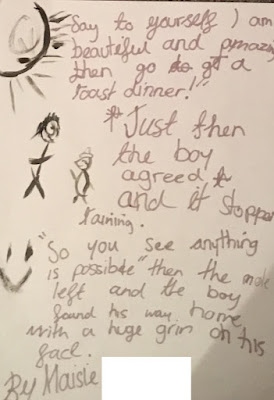 Say to yourself I am
beautiful and amazing
then go to get a
roast dinner!"
*Just then
the boy
agreed *
and it stopped
raining.
"So you see anything
is possible" then the mole
left and the boy
found his way home
with a huge grin on his
face.
By Maisie